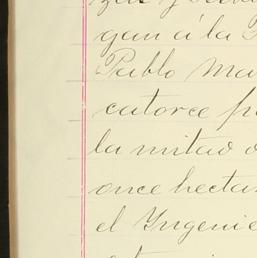 y
gan á la
Pablo Ma
catorce
la mitad
once hecta
el Ingenie